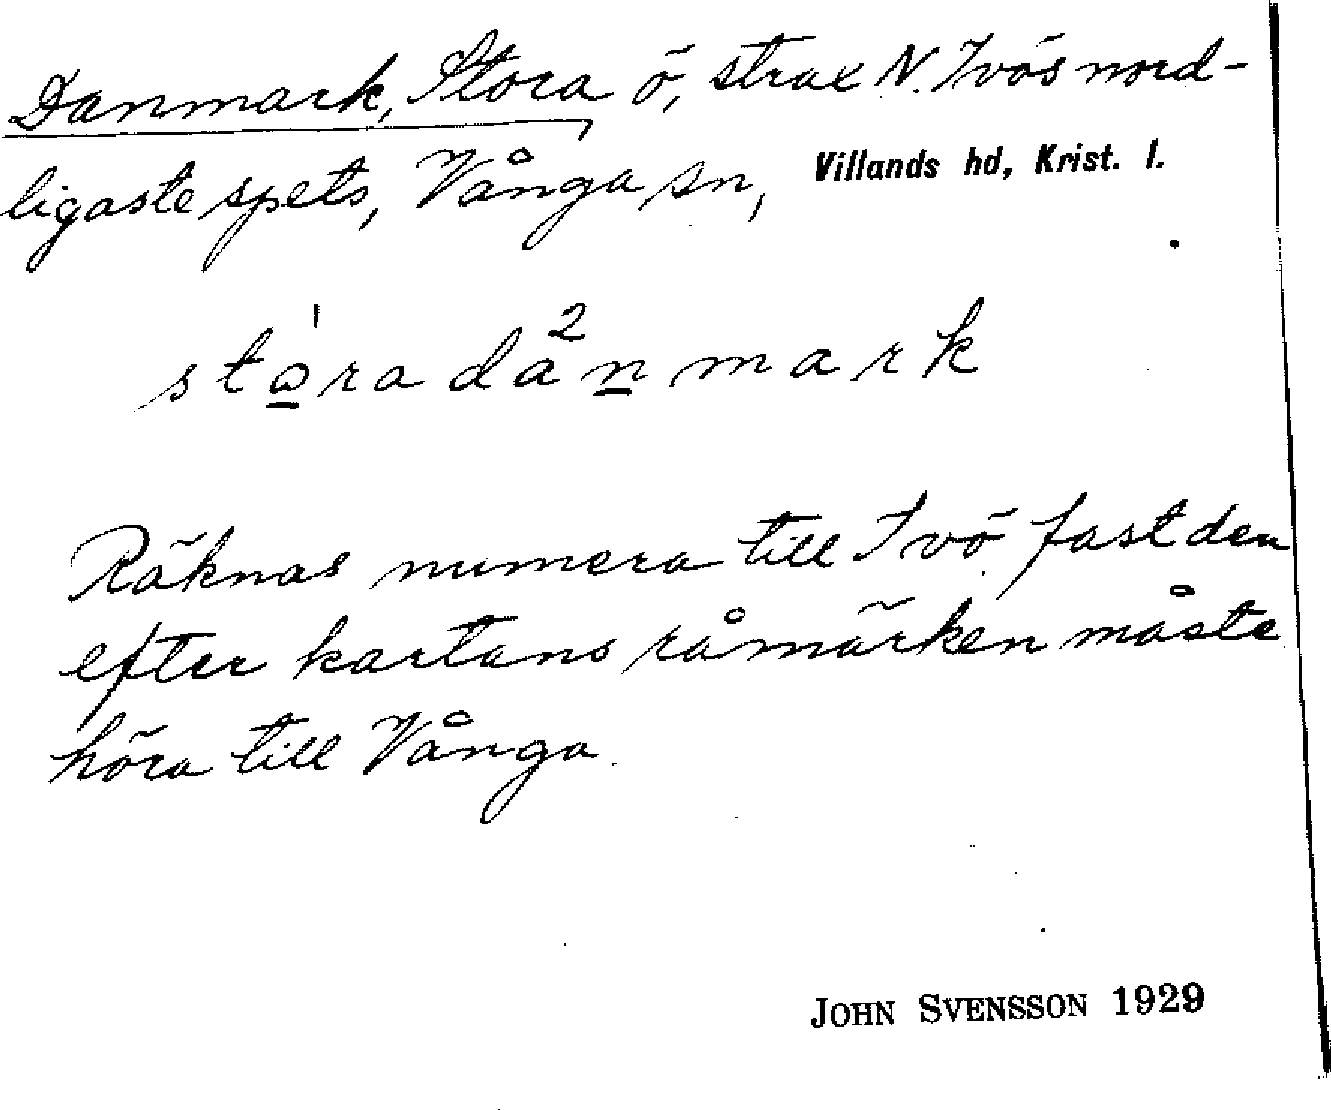 Danmark, Stora ö, strax N. Ivös nord-
ligaste spets, Vånga sn, Villands hd, Krist. l.
stọ́ra då²n̲mark
Räknas numera till Ivö fast den
efter kartans råmärken måste
höra till Vånga.
JOHN SVENSSON 1929